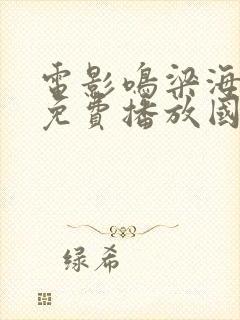 電影鳴梁海
免費播放國
绿希